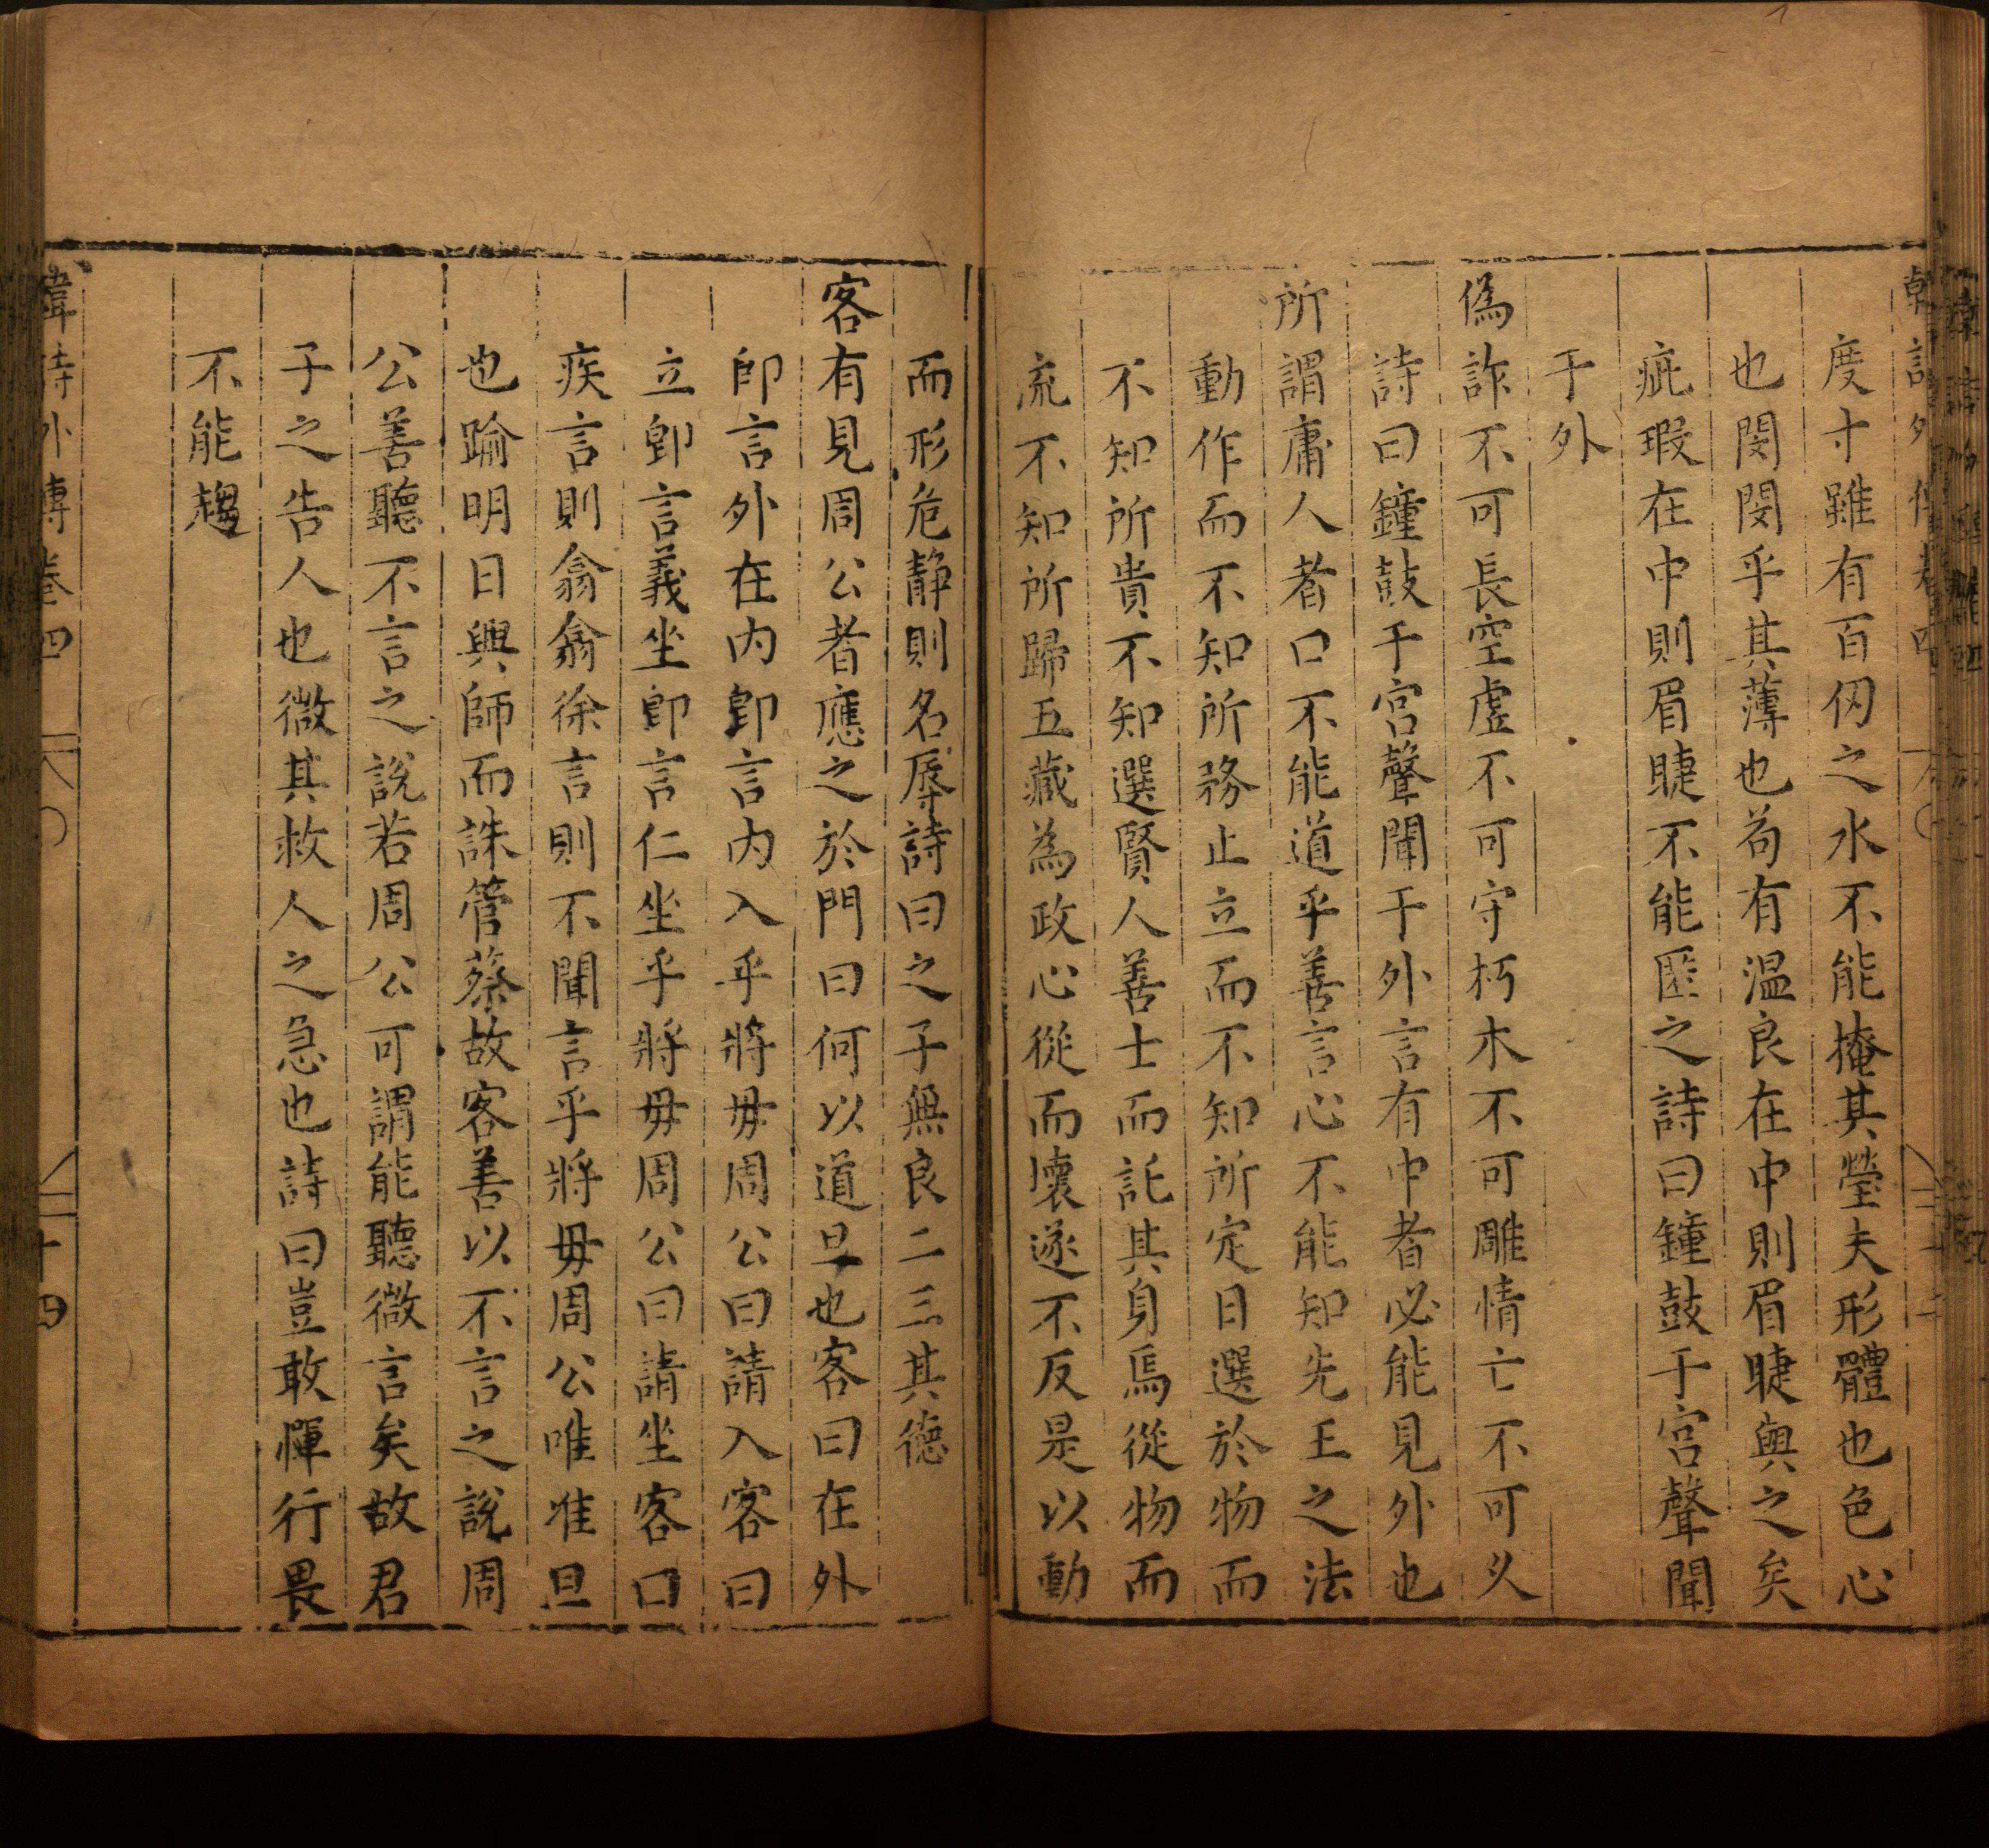 度寸雖有百仭之水不能掩其瑩夫形體也色心
也閔閔乎其薄也苟有温良在中則眉睫與之矣
疵瑕在中則眉睫不能匿之詩曰鐘鼓于宮聲聞
于外
偽詐不可長空虛不可守朽木不可雕情亡不可久
詩曰鐘鼓于宮聲聞于外言有中者必能見外也
所謂庸人者口不能道乎善言心不能知先王之法
動作而不知所務止立而不知所定日選於物而
不知所貴不知選賢人善士而託其身焉從物而
流不知所歸五藏為政心從而壞遂不反是以動
而形危靜則名辱詩曰之子無良二三其德
客有見周公者應之於門曰何以道旦也客曰在外
卽言外在內卽言內入乎將毋周公曰請入客曰
立卽言義坐卽言仁坐乎將毋周公曰請坐客曰
疾言則翕翕徐言則不聞言乎將毋周公唯唯旦
也踰明日興師而誅管蔡故客善以不言之說周
公善聽不言之說若周公可謂能聽微言矣故君
子之告人也微其救人之急也詩曰豈敢憚行畏
不能趨
韓詩外傳卷四
十四